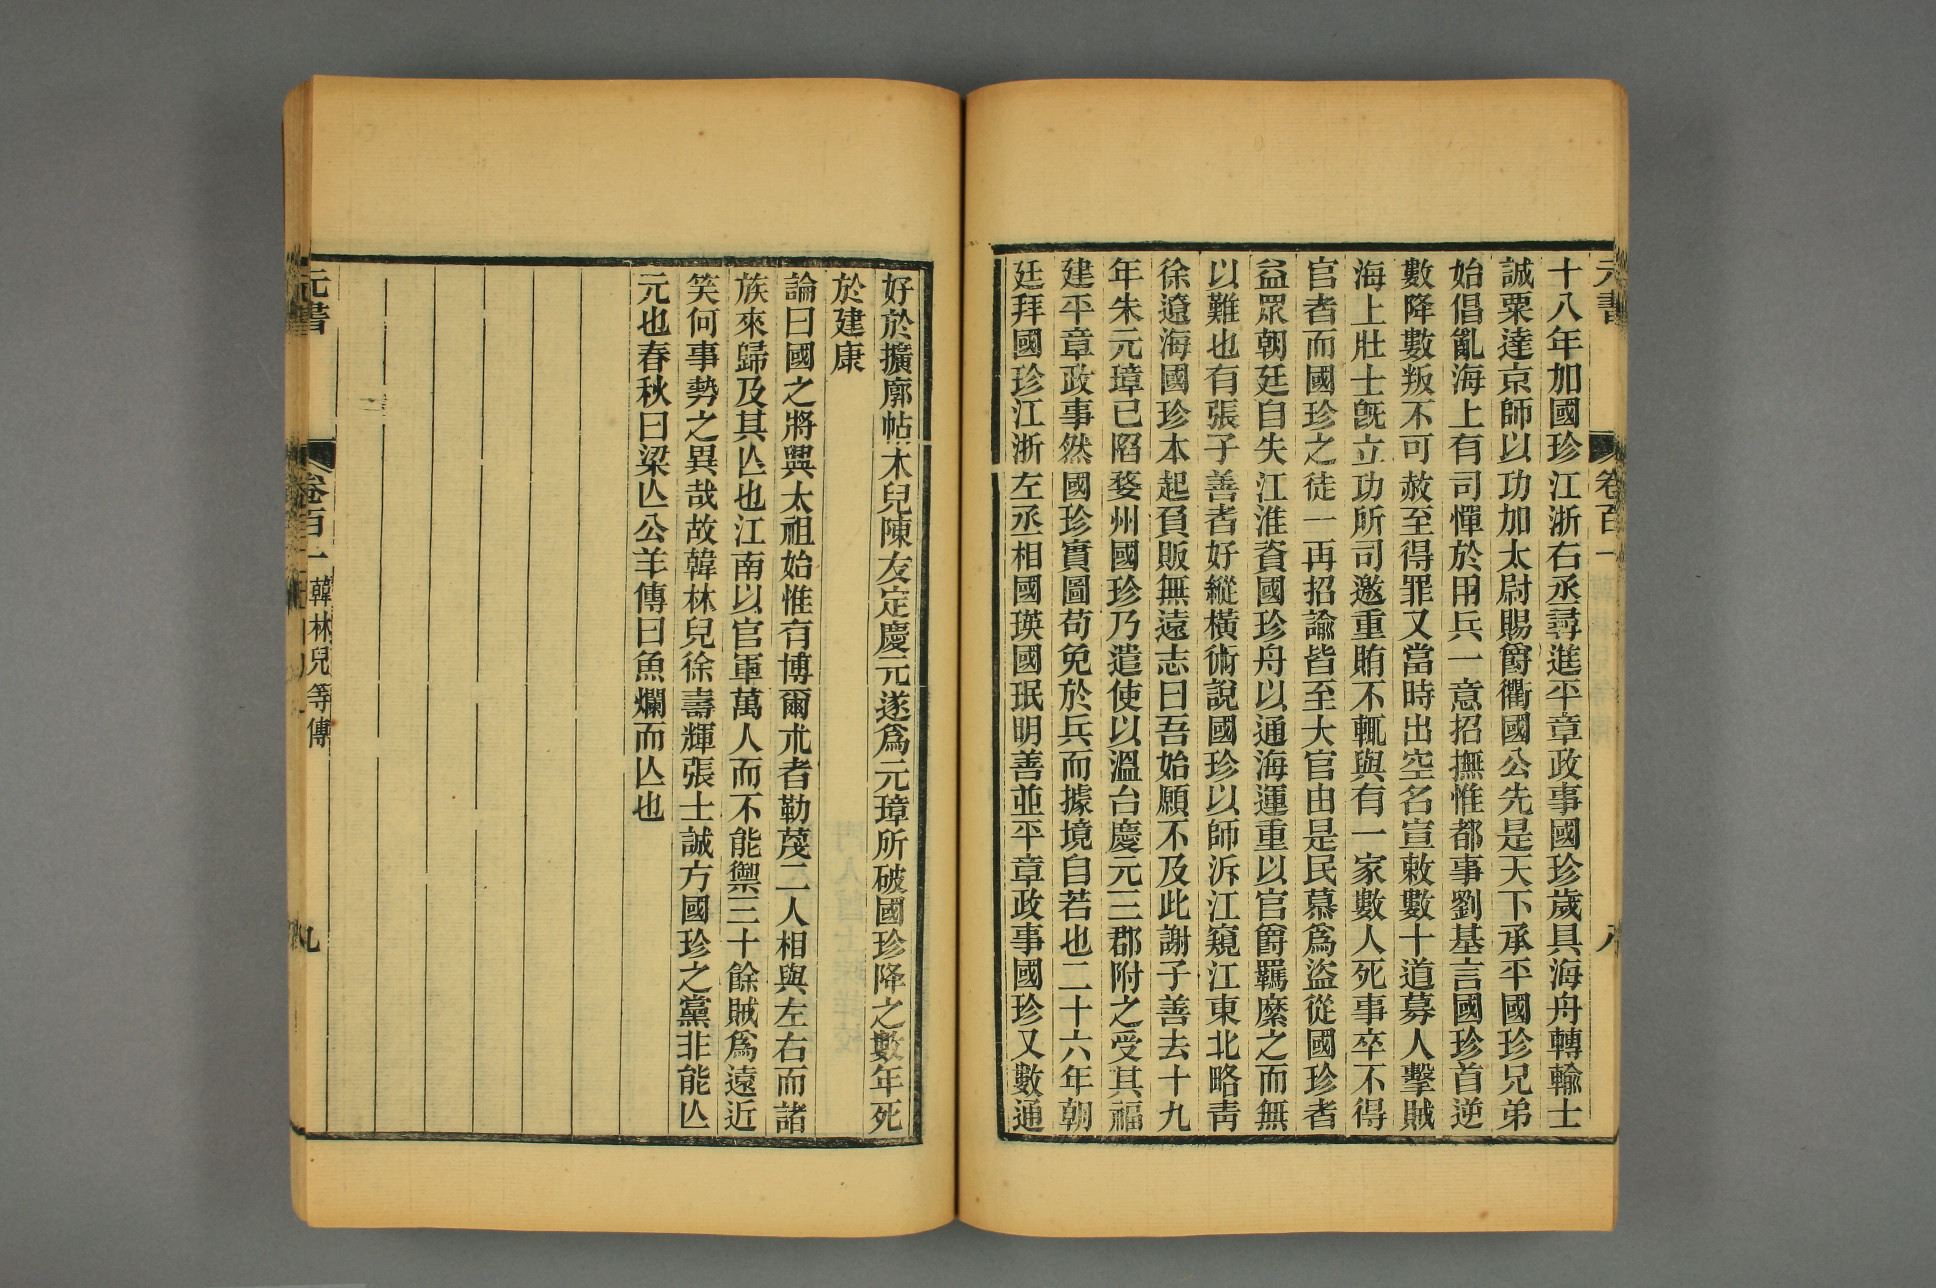 元書
卷百一
八
十八年加國珍江浙右丞尋進平章政事國珍歲具海舟轉輸士
誠粟達京師以功加太尉賜爵衢國公先是天下承平國珍兄弟
始倡亂海上有司憚於用兵一意招撫惟都事劉基言國珍首逆
數降數叛不可赦至得罪又當時出空名宣敕數十道募人擊賊
海上壯士旣立功所司邀重賄不輒與有一家數人死事卒不得
官者而國珍之徒一再招諭皆至大官由是民慕爲盜從國珍者
益眾朝廷自失江淮資國珍舟以通海運重以官爵羈縻之而無
以難也有張子善者好縱橫術說國珍以師泝江窺江東北略靑
徐遼海國珍本起負販無遠志曰吾始願不及此謝子善去十九
年朱元璋已陷婺州國珍乃遣使以溫台慶元三郡附之受其福
建平章政事然國珍實圖苟免於兵而據境自若也二十六年朝
廷拜國珍江浙左丞相國瑛國珉明善並平章政事國珍又數通
好於擴廓帖木兒陳友定慶元遂爲元璋所破國珍降之數年死
於建康
論曰國之將興太祖始惟有博爾朮者勒蔑二人相與左右而諸
族來歸及其亾也江南以官軍萬人而不能禦三十餘賊爲遠近
笑何事勢之異哉故韓林兒徐壽輝張士誠方國珍之黨非能亾
元也春秋曰梁亾公羊傳曰魚爛而亾也
元書
卷百一 韓林兒等傳
九